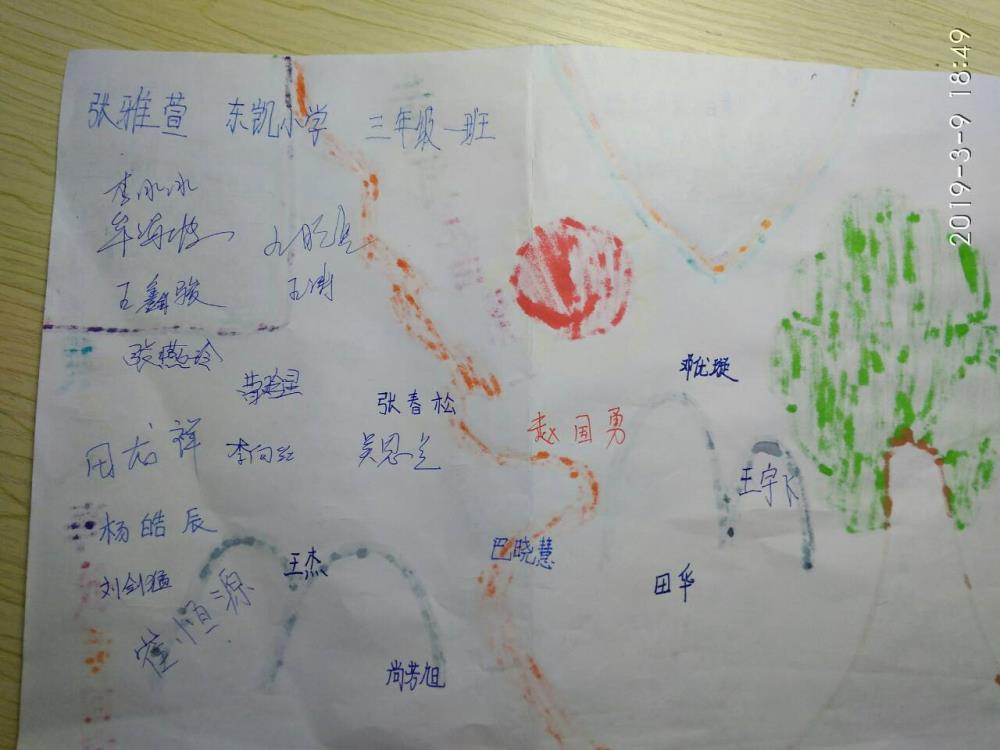 张雅萱 东凯小学 三年级一班
李冰冰
牟海波
王鑫骏 王涛
张燕玲
邓优璇
张春松
赵国勇
周龙祥 李向红 吴思兰
王宇飞
杨皓辰
王杰 巴晓慧
刘剑猛 田华
崔恒源
尚芳旭
2019-3-9 18:49